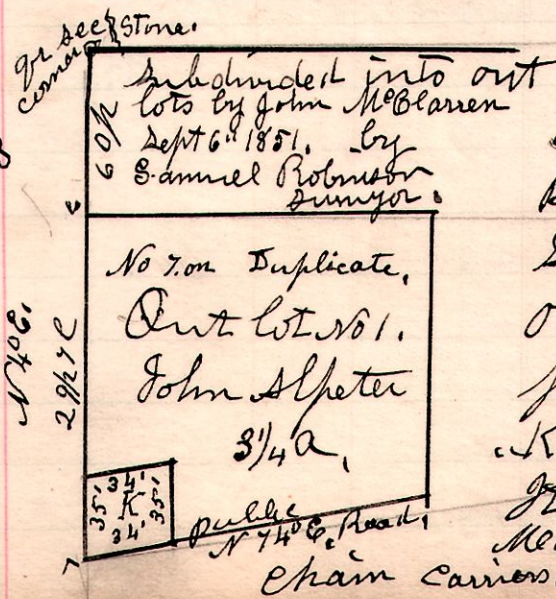 Qr see Stone.
corner
Subdivided into out
lots by John McClarren
Sept 6th 1851. by
Samuel Robinson
Surveyor.
60p
N 4° E.
No 7. on Duplicate.
Out lot No 1.
John Alpeter
3 1/4 a.
34'
35' K 35'
34'
public
N 74° E. Road.
Chain Carriers